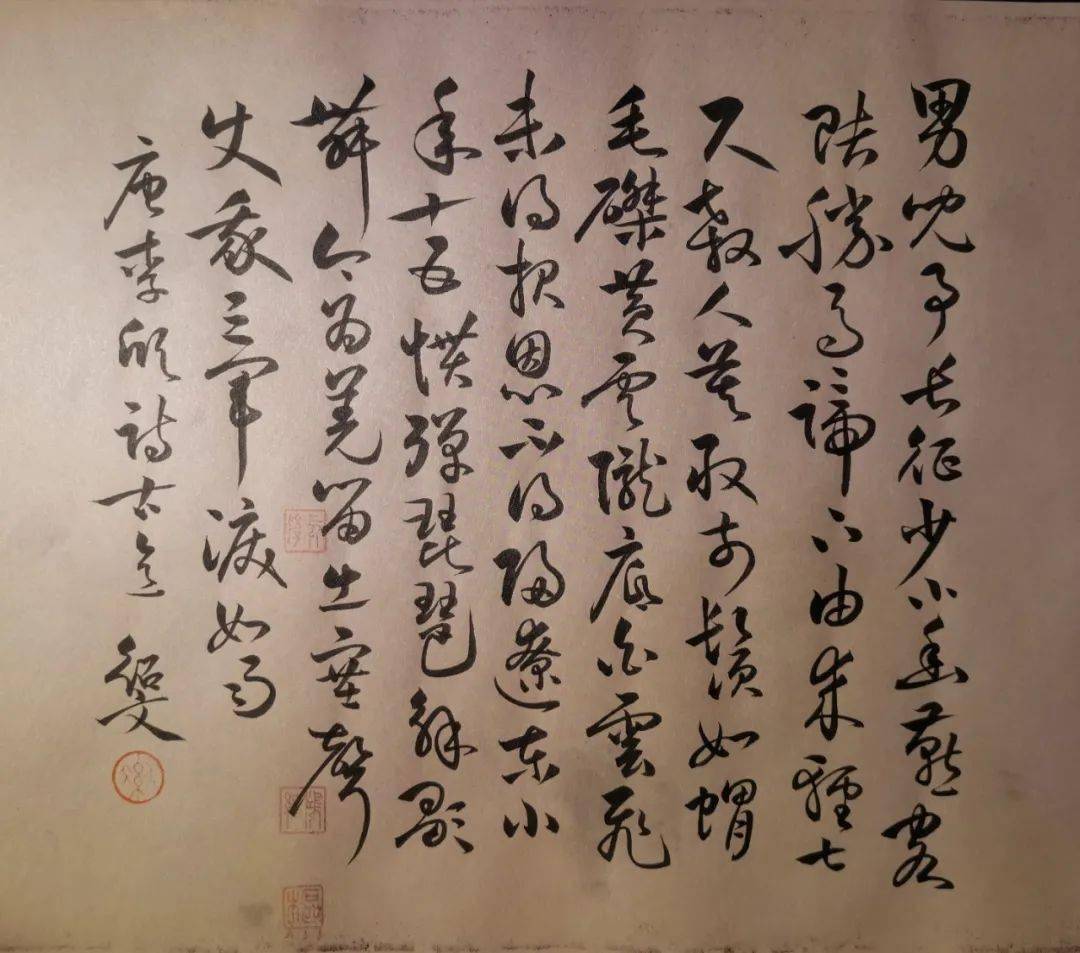 男兒事長征少小幽燕客
賭勝馬蹄下由來輕七
尺殺人莫敢前鬚如蝟
毛磔黃雲隴底白雲飛
未得報恩不得歸遼東小
年十五慣彈琵琶解歌
舞今為羌笛出塞聲
使我三軍淚如雨
唐李頎詩古意